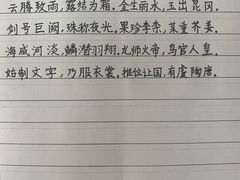 云腾致雨,露结为霜。金生丽水,玉出昆冈。
剑号巨阙,珠称夜光。果珍李柰,菜重芥姜。
海咸河淡,鳞潜羽翔。龙师火帝,鸟官人皇。
始制文字,乃服衣裳。推位让国,有虞陶唐。